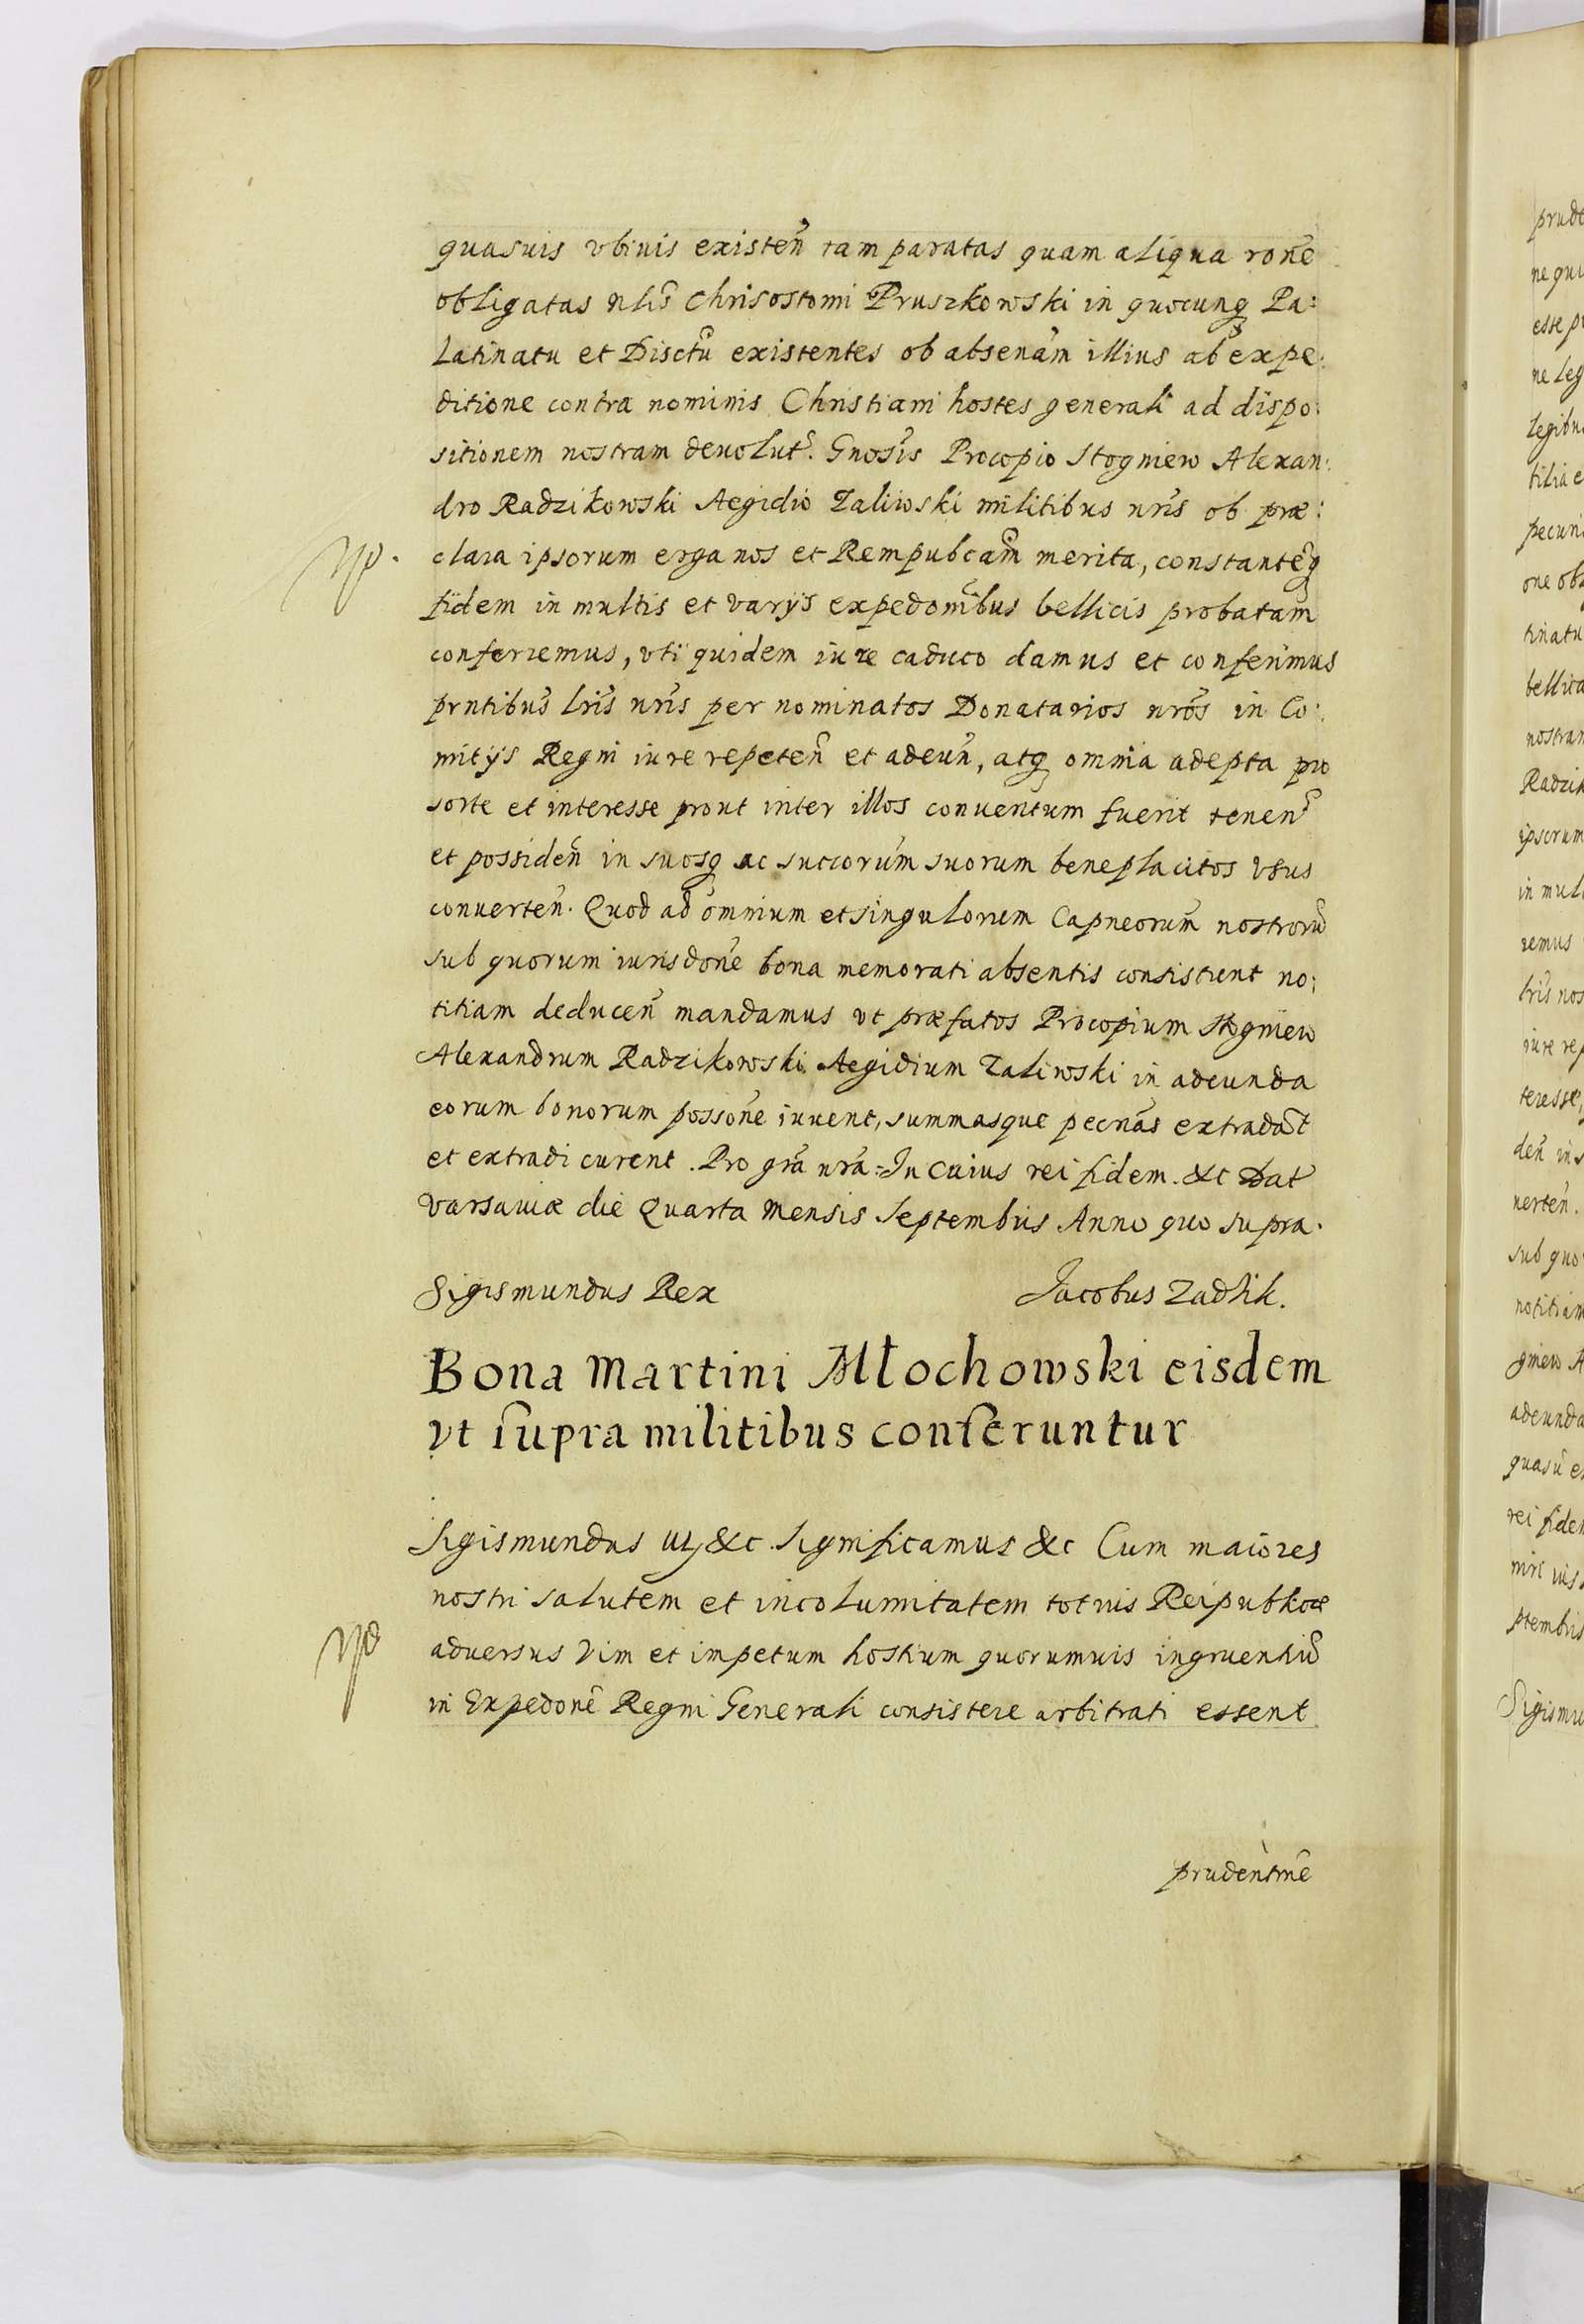 quasuis vbiuis existeñ tam paratas quam aliqua rone
obligatas nlis Chrisostomi Pruszkowski in quocunq Pa:
latinatu et Disctu existentes ob absenam illius ab expe:
ditione contra nominis Christiani hostes generali ad dispo:
sitionem nostram deuolut. Gnosis Procopio Stogniew Alexan:
dro Radzikowski Aegidio Zaliwski militibus nris ob præ:
clara ipsorum erga nos et Rempubcam merita, constanteq
fidem in multis et varijs expedonibus bellicis probatam
conferremus, vti quidem iure caduco damus et conferimus
prntibus lris nris per nominatos Donatarios nros in Co:
mitijs Regni iure repeteñ et adeuñ, atq omnia adepta pro
sorte et interesse prout inter illos conuentum fuerit teneñ
et possideñ in suosq ac succorum suorum beneplacitos vsus
conuerteñ. Quod ad omnium et singulorum Capneorum nostroru
sub quorum iurisdone bona memorati absentis consistunt no:
titiam deduceñ mandamus vt præfatos Procopium Stogniew
Alexandrum Radzikowski Aegidium Zaliwski in adeunda
eorum bonorum possone iuuent, summasque pecnas extradat
et extradi curent. Pro gra nra. In cuius rei fidem. &c Dat
Varsauiæ die Quarta Mensis Septembris Anno quo supra.
Sigismundus Rex Jacobus Zadzik.
Bona Martini Młochowski eisdem
vt supra militibus conferuntur
Sigismundus III &c. Significamus &c Cum maiores
nostri salutem et incolumitatem totius Reipublicæ
aduersus vim et impetum hostium quorumuis ingruentiu
in Expedone Regni Generali consistere arbitrati essent
prudentme